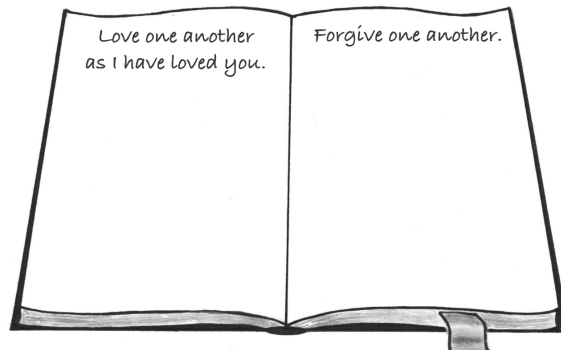 Love one another
as I have loved you.
Forgive one another.